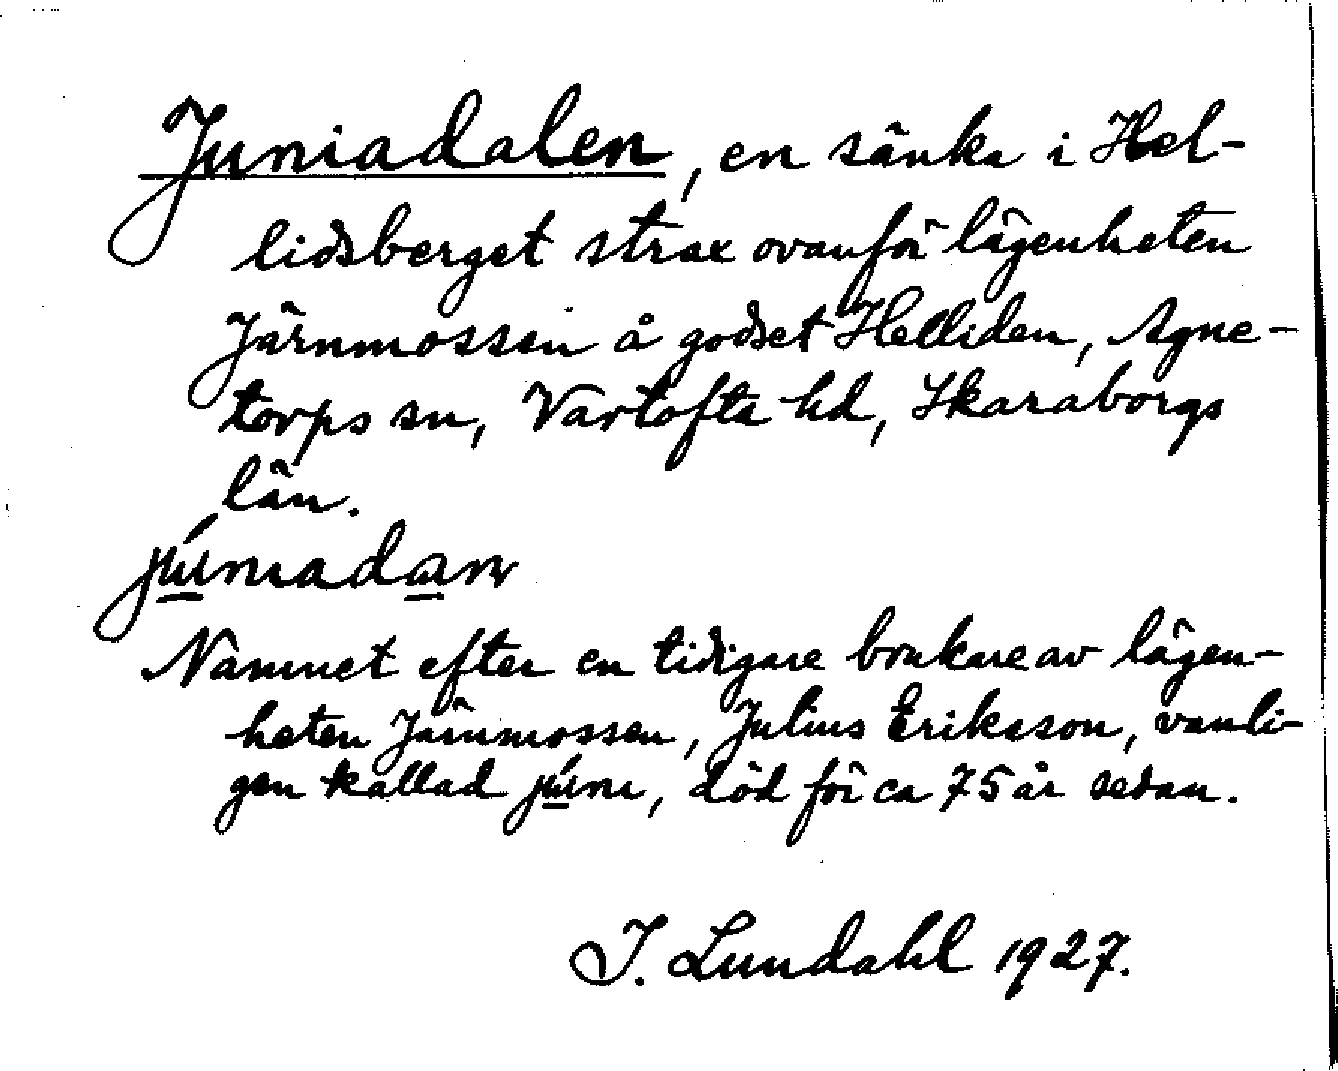 Juniadalen, en sänka i Hel-
lidsberget strax ovanför lägenheten
Järnmossen å godset Helliden, Agne-
torps sn, Vartofta hd, Skaraborgs
län.
júniadan
Namnet efter en tidigare brukare av lägen-
heten Järnmossen, Julius Eriksson, vanli-
gen kallad júni, död för ca 75 år sedan.
J. Lundahl 1927.